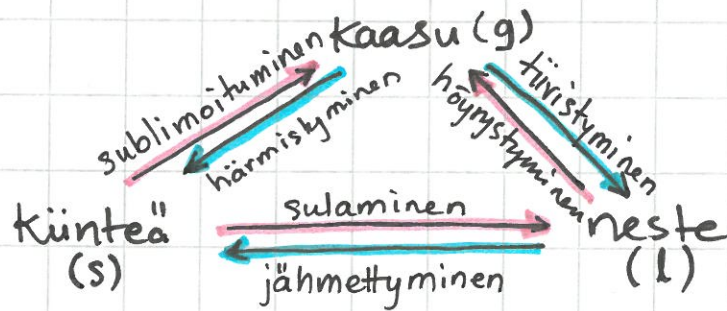 kaasu (g)
sublimoituminen
härmistyminen
tiivistyminen
höyrystyminen
kiinteä
(s)
sulaminen
jähmettyminen
neste
(l)